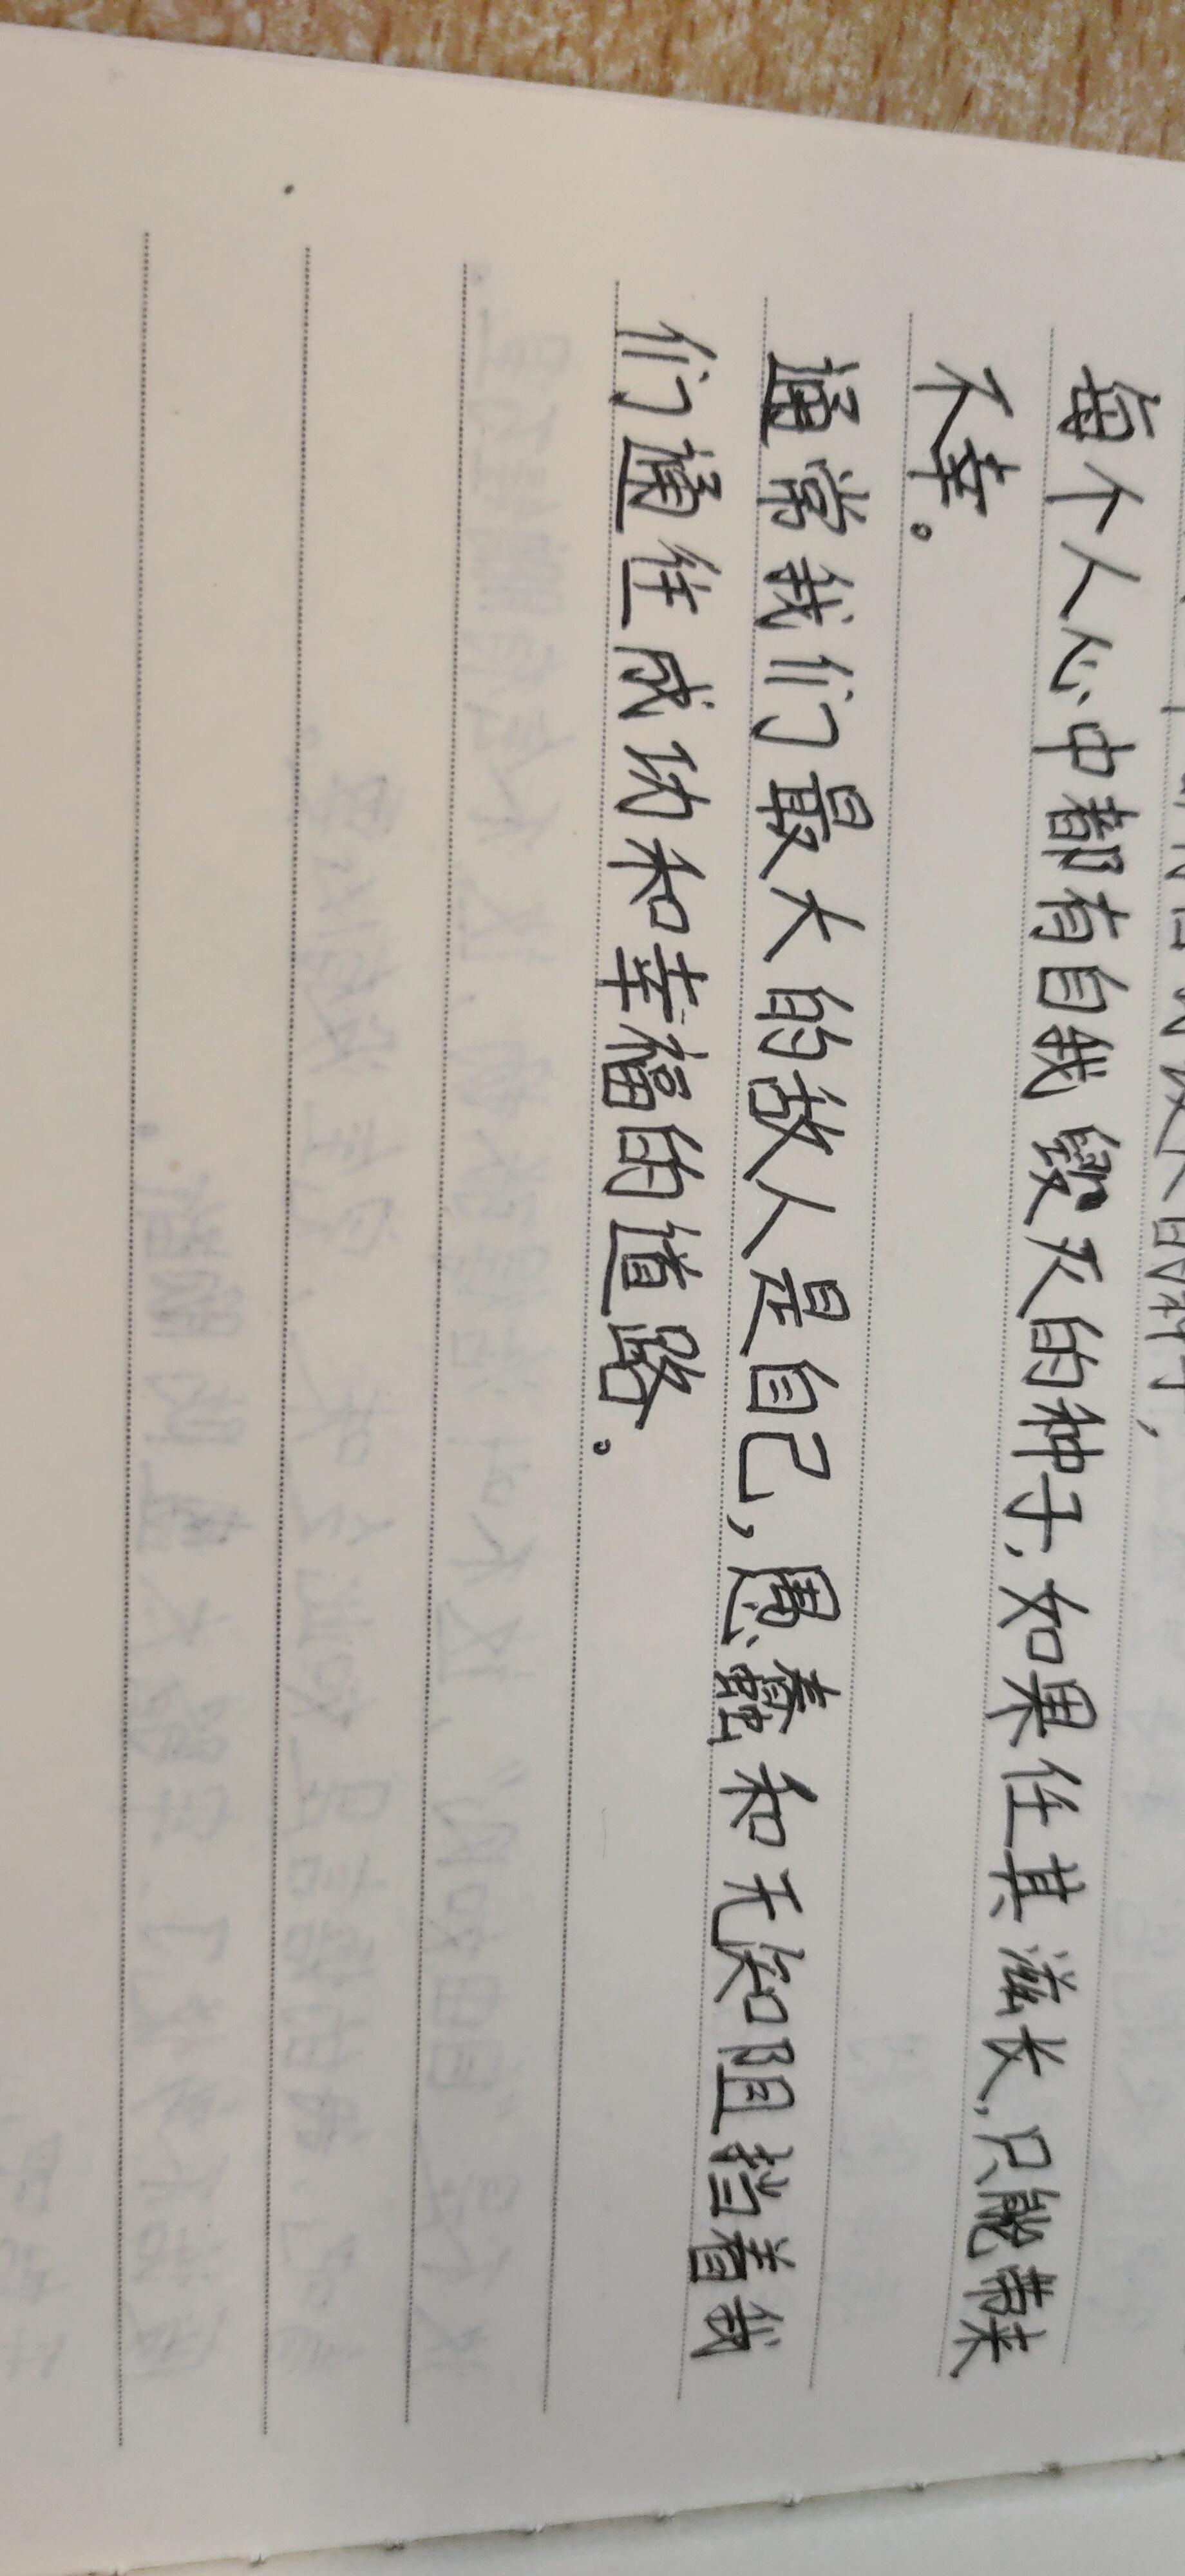 每个人心中都有自我毁灭的种子，如果任其滋长，只能带来
不幸。
通常我们最大的敌人是自己，愚蠢和无知阻挡着我
们通往成功和幸福的道路。